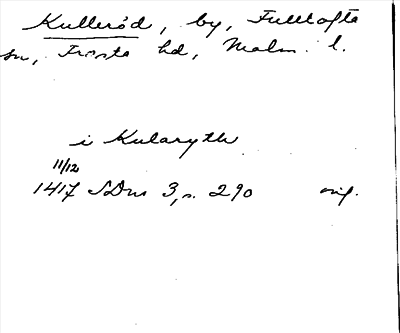 Kulleröd, by, Fulltofta
sn, Frosta hd, Malm. l.
i Kularyth
11/12
1417 SDns 3, s. 290 orig.